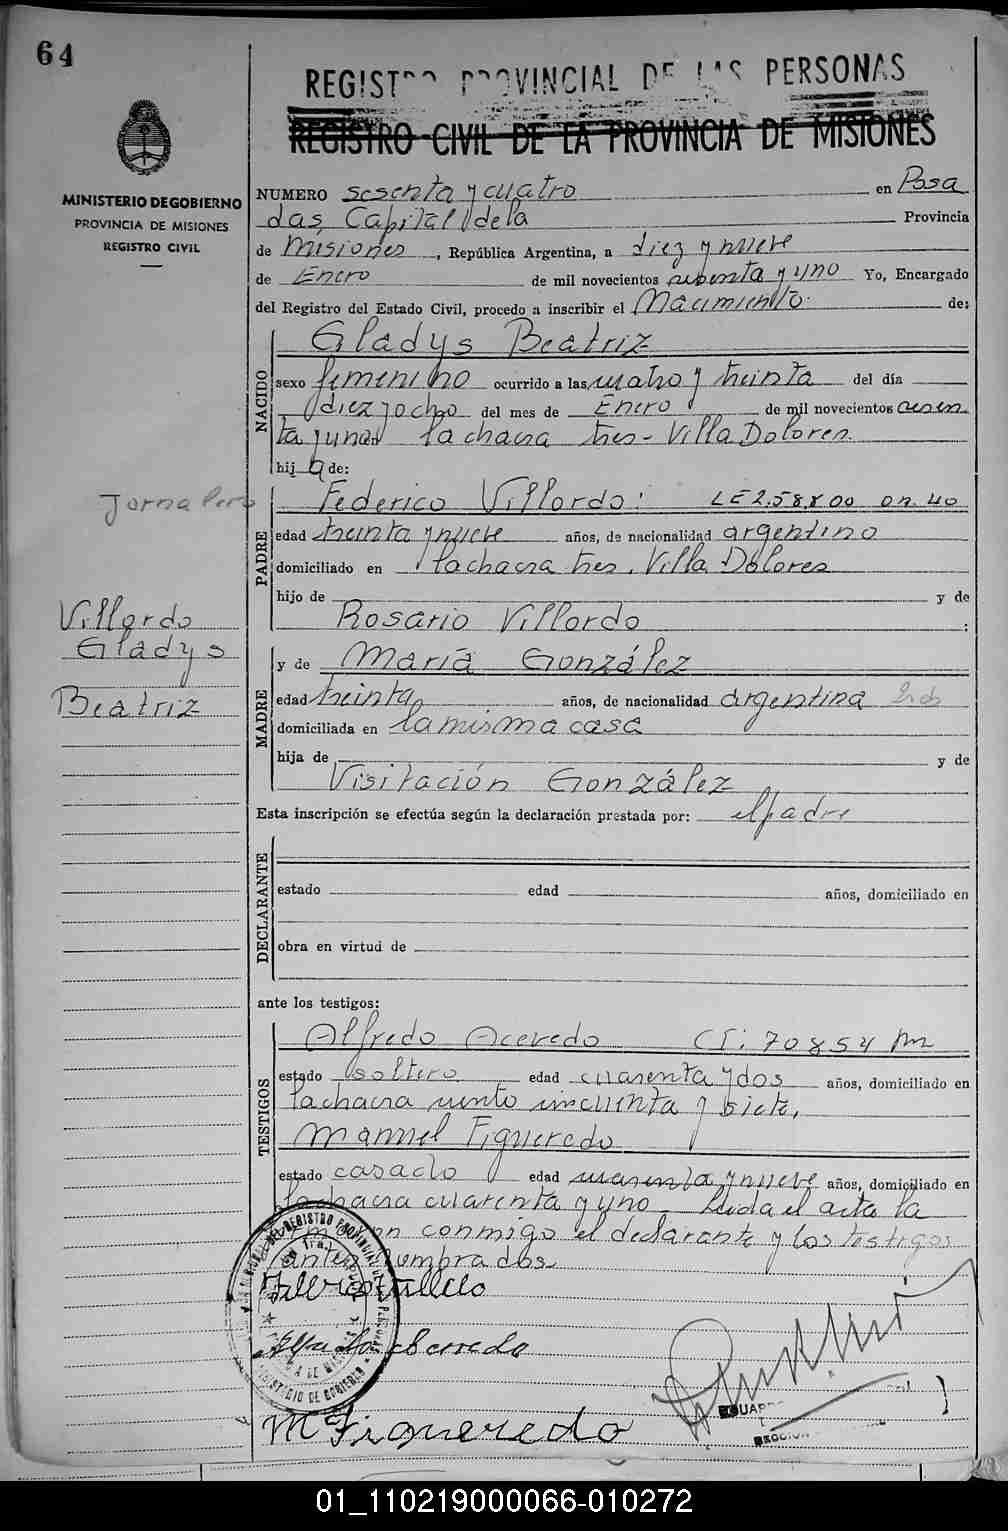 64
REGISTRO PROVINCIAL DE LAS PERSONAS
REGISTRO CIVIL DE LA PROVINCIA DE MISIONES
MINISTERIO DE GOBIERNO
PROVINCIA DE MISIONES
REGISTRO CIVIL
NUMERO sesenta y cuatro en Posa
das, Capital de la Provincia
de Misiones, República Argentina, a diez y nueve
de Enero de mil novecientos sesenta y uno Yo, Encargado
del Registro del Estado Civil, procedo a inscribir el Nacimiento. de:
NACIDO
Gladys Beatriz
sexo femenino ocurrido a las cuatro y treinta del día
diez y ocho del mes de Enero de mil novecientos sesen
ta y uno la chacra tres - Villa Dolores.
hij a de:
Jornalero
PADRE
Federico Villordo: LE 2.588.00 DM. 40
edad treinta y nueve años, de nacionalidad argentino
domiciliado en la chacra tres. Villa Dolores
hijo de y de
Rosario Villordo :
Villordo
Gladys
Beatriz
MADRE
y de María González
edad treinta años, de nacionalidad argentina
domiciliada en la misma casa
hija de y de
Visitación González
Esta inscripción se efectúa según la declaración prestada por: el padre
DECLARANTE
estado edad años, domiciliado en
obra en virtud de
ante los testigos:
TESTIGOS
Alfredo Acevedo CI: 70854 Mn
estado soltero edad cuarenta y dos años, domiciliado en
la chacra ciento cincuenta y siete,
Manuel Figueredo
estado casado edad cuarenta y nueve años, domiciliado en
la chacra cuarenta y uno. Leída el acta la
conmigo el declarante y los testigos
antes nombrados
M Figueredo
01_110219000066-010272